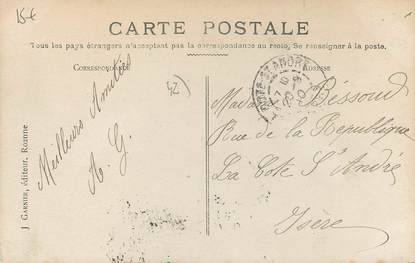 15€
CARTE POSTALE
Tous les pays étrangers n'acceptant pas la correspondance au recto, Se renseigner à la poste.
CORRESPONDANCE
ADRESSE
Meilleurs Amitiés
A. G.
J GARNIER, éditeur, Roanne
Madame Béssoud
Rue de la République
La Côte St André
Isère